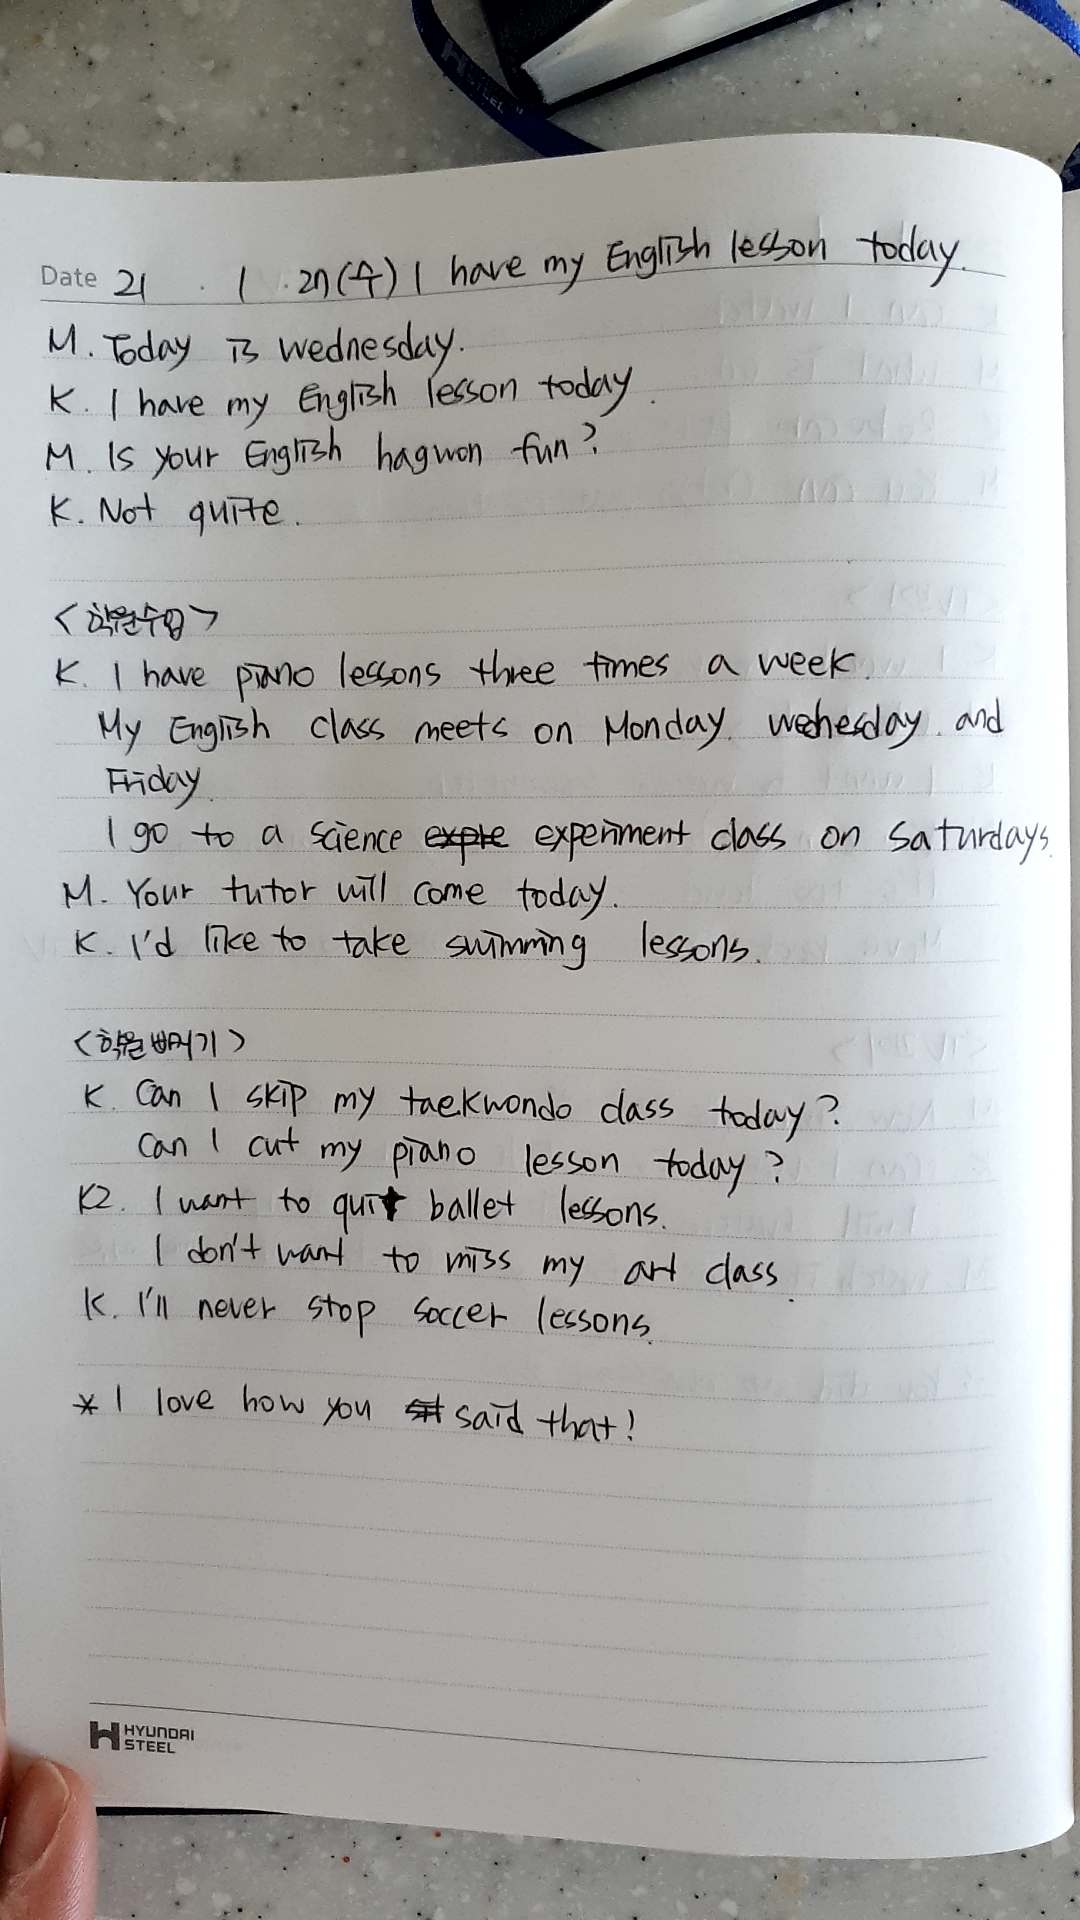 Date 21 . 1 . 27(수) I have my English lesson today.
M. Today is wednesday.
K. I have my English lesson today.
M. Is your English hagwon fun?
K. Not quite.
<학원수업>
K. I have piano lessons three times a week.
My English class meets on Monday, wednesday, and
Friday.
I go to a science expre experiment class on Saturdays.
M. Your tutor will come today.
K. I'd like to take swimming lessons.
<학원빠지기>
K. Can I skip my taekwondo class today?
Can I cut my piano lesson today?
K2. I want to quit ballet lessons.
I don't want to miss my art class.
K. I'll never stop soccer lessons.
* I love how you said that!
HYUNDAI
STEEL